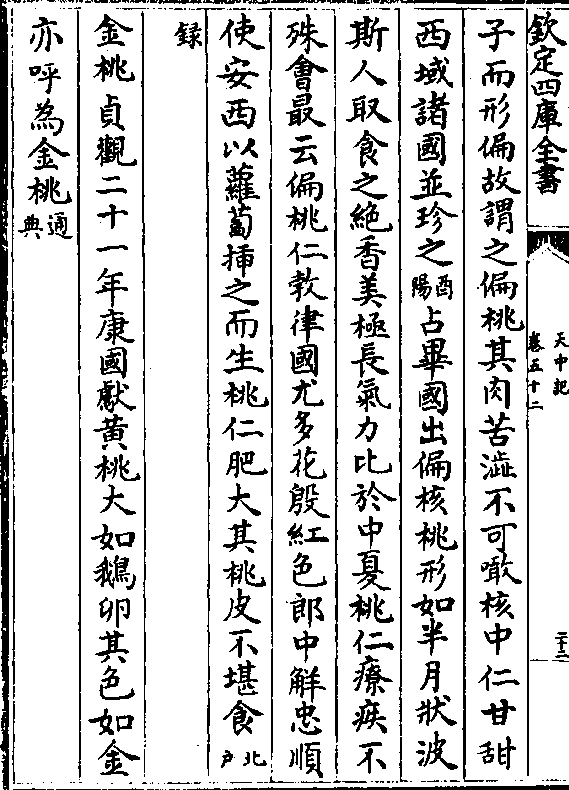 欽定四庫全書
天中記
卷五十二
二十三
子而形偏故謂之偏桃其肉苦澁不可噉核中仁甘甜
西域諸國並珍之酉陽占畢國出偏核桃形如半月狀波
斯人取食之絶香美極長氣力比於中夏桃仁療疾不
殊會最云偏桃仁敦律國尤多花殷紅色郎中解忠順
使安西以蘿蔔揷之而生桃仁肥大其桃皮不堪食北戸
録
金桃貞觀二十一年康國獻黄桃大如鵝卵其色如金
亦呼為金桃通典